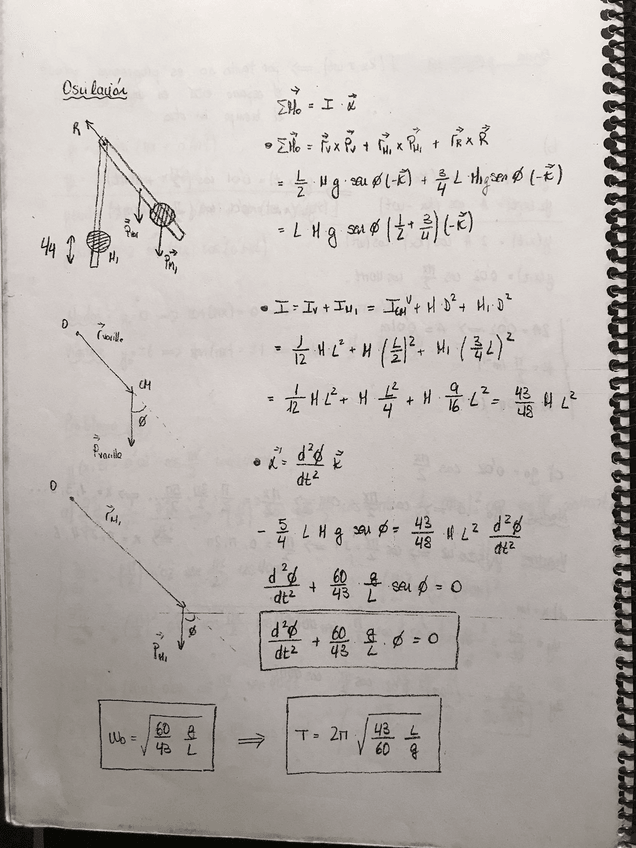 Oscilación
ΣM⃗o = I · α⃗
• ΣM⃗o = r⃗v × P⃗v + r⃗M1 × P⃗M1 + r⃗R × R⃗
= L/2 · M g · sen ø (-k⃗) + 3/4 L · M1 g sen ø (-k⃗)
= L M g sen ø (1/2 + 3/4) (-k⃗)
R
P⃗M1
L/4
M1
• I = Iv + IM1 = ICMV + M·D² + M1·D²
= 1/12 M L² + M (L/2)² + M1 (3/4 L)²
= 1/12 M L² + M L²/4 + M · 9/16 · L² = 43/48 M L²
O
r⃗varilla
CM
ø
P⃗varilla
• α⃗ = d²ø/dt² k⃗
- 5/4 L M g sen ø = 43/48 M L² d²ø/dt²
d²ø/dt² + 60/43 · g/L sen ø = 0
d²ø/dt² + 60/43 · g/L · ø = 0
O
r⃗M1
ø
P⃗M1
ω0 = √(60/43 g/L) ⟹ T = 2π · √(43/60 L/g)